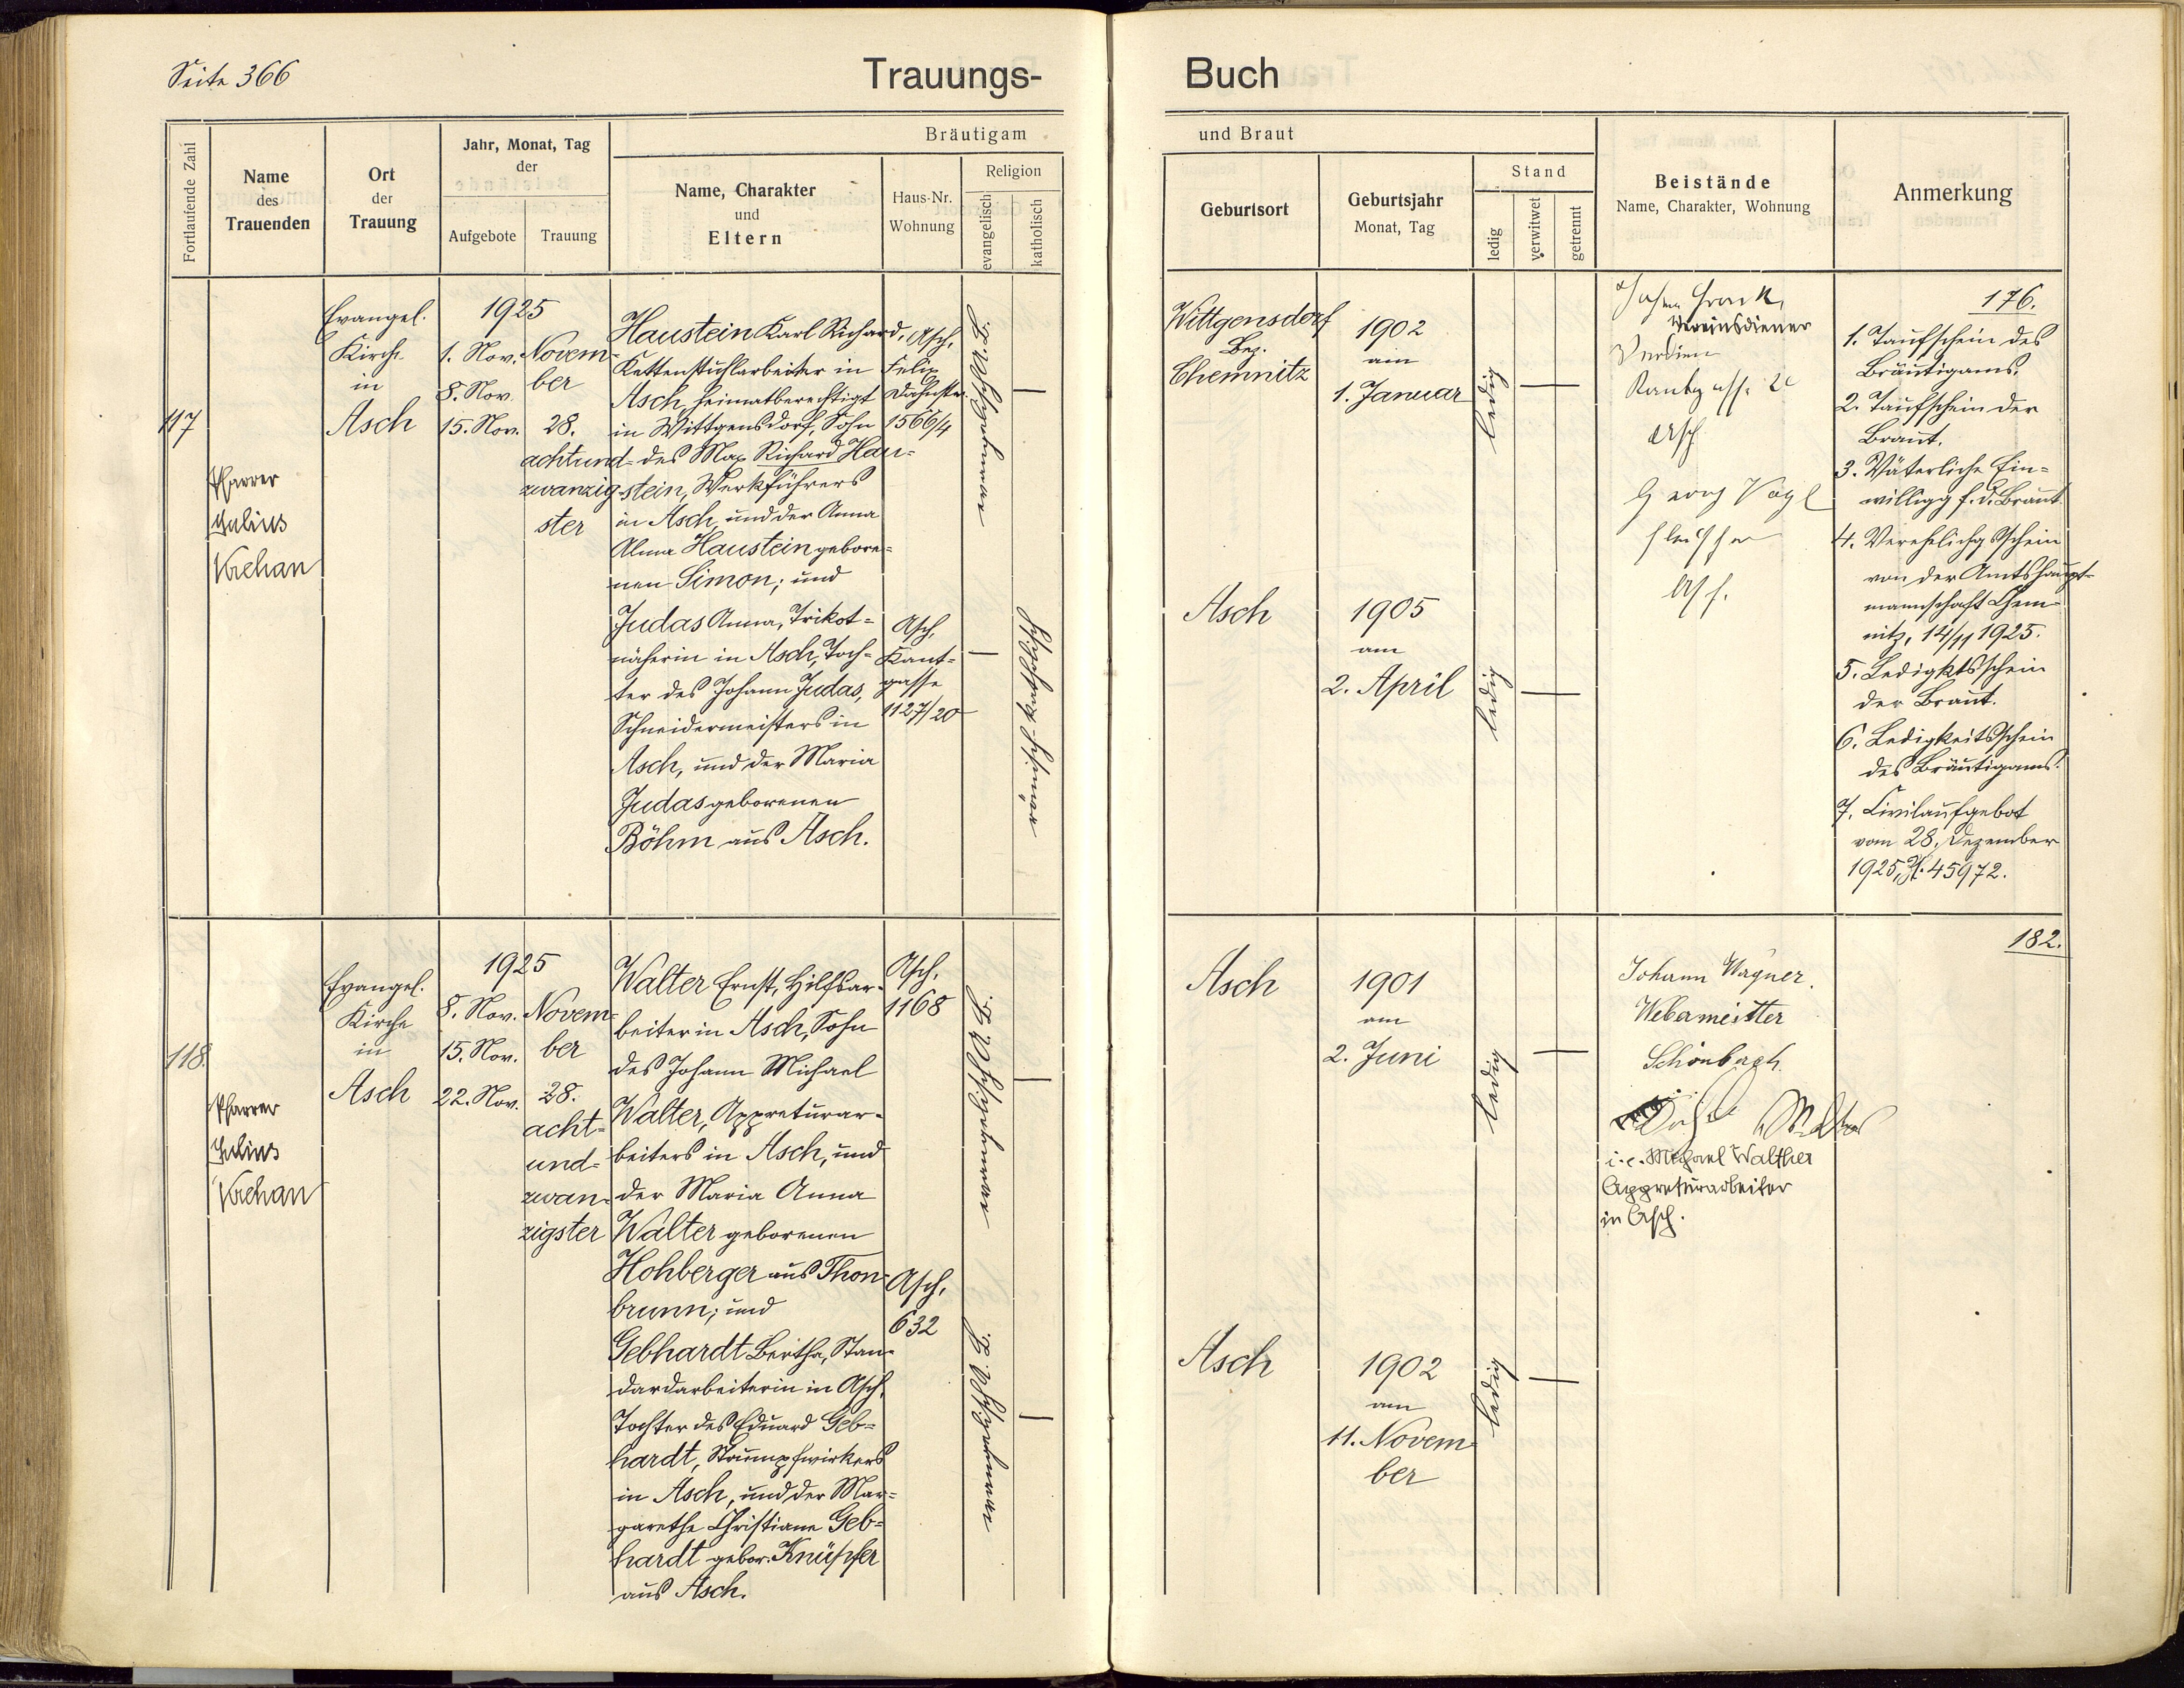 Seite 366
Trauungs-
Buch
Fortlaufende Zahl
Name
des
Trauenden
Ort
der
Trauung
Jahr, Monat, Tag
der
Aufgebote
Trauung
Bräutigam
Name, Charakter
und
Eltern
Haus-Nr.
Wohnung
Religion
evangelisch
katholisch
und Braut
Geburtsort
Geburtsjahr
Monat, Tag
Stand
ledig
verwitwet
getrennt
Beistände
Name, Charakter, Wohnung
Anmerkung
117
Pfarrer
Julius
Evangel.
Kirche
in
Asch
1925
1. Nov.
8. Nov.
15. Nov.
Novem-
ber
28.
achtund-
zwanzig
ster
Haustein Karl Richard,
Kettenstuhlarbeiter in
Asch, heimatberechtigt
in Wittgensdorf, Sohn
des Max Richard Hau-
stein, Werkführers
in Asch, und der Anna
Alma Haustein gebore-
nen Simon; und
Judas Anna, Trikot-
näherin in Asch, Toch-
ter des Johann Judas,
Schneidermeisters in
Asch, und der Maria
Judas geborenen
Böhm aus Asch.
Asch,
Felix
Dahnstr.
1566/4
Asch,
Kant-
gasse
1127/20
evangelisch A. B.
römisch-katholisch
Wittgensdorf
Bez.
Chemnitz
1902
am
1. Januar
ledig
Asch
1905
am
2. April
ledig
Vereinsdiener
Asch
Georg Vogl
Asch.
176.
1. Taufschein des
Bräutigams.
2. Taufschein der
Braut.
3. Väterliche Ein-
willigg f. d. Braut
4. Verehelichgsschein
von der Amtshaupt-
mannschaft Chem-
nitz, 14/11 1925.
5. Ledigktsschein
der Braut.
6. Ledigkeitsschein
des Bräutigams.
7. Civilaufgebot
vom 28. Dezember
1925, Zl. 45972.
118.
Pfarrer
Julius
Evangel.
Kirche
in
Asch
1925
8. Nov.
15. Nov.
22. Nov.
Novem-
ber
28.
acht-
und-
zwan-
zigster
Walter Ernst, Hilfsar-
beiter in Asch, Sohn
des Johann Michael
Walter, Appreturar-
beiters in Asch, und
der Maria Anna
Walter geborenen
Hohberger aus Thon-
brunn; und
Gebhardt Bertha, Stan-
dardarbeiterin in Asch,
Tochter des Eduard Geb-
hardt, Strumpfwirkers
in Asch, und der Mar-
garethe Christiane Geb-
hardt gebor. Knüpfer
aus Asch.
Asch,
1168
Asch,
632
evangelisch A. B.
evangelisch A. B.
Asch
1901
am
2. Juni
ledig
Asch
1902
am
11. Novem-
ber
ledig
Johann Wagner.
Webermeister
Schönbach.
i. e. Michael Walther
Appreturarbeiter
in Asch.
182.